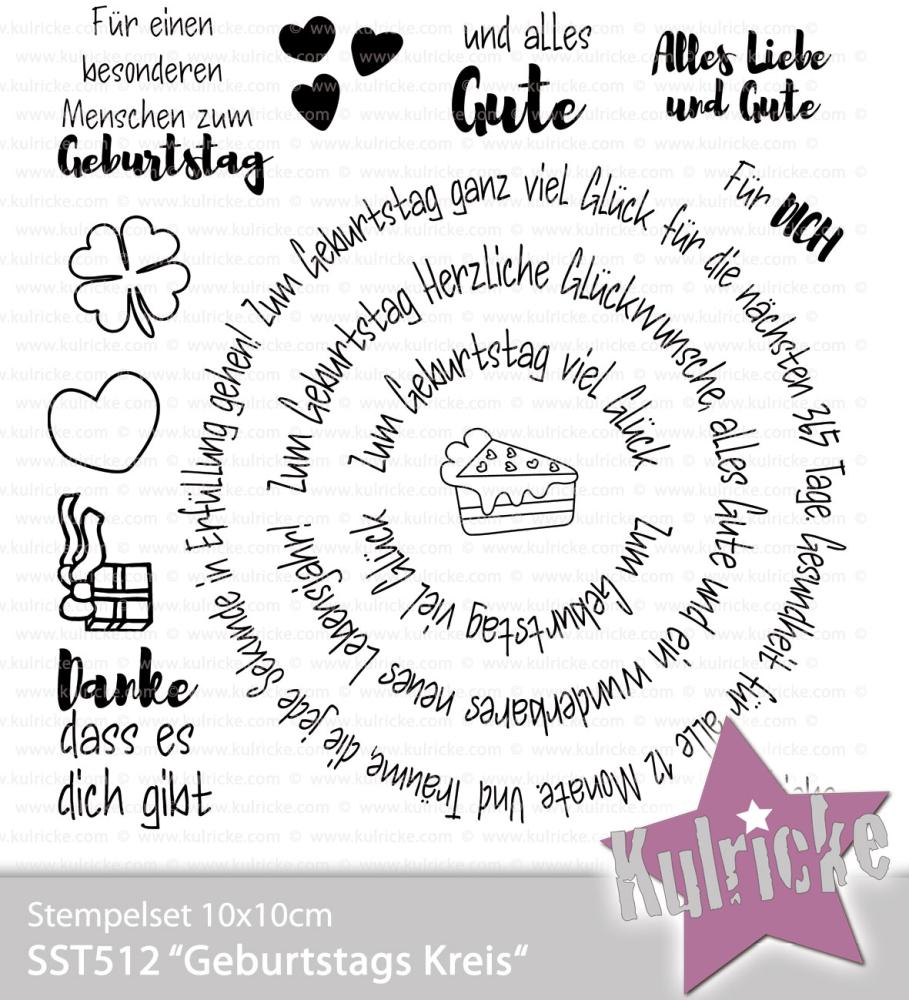 Für einen
besonderen
Menschen zum
Geburtstag
und alles
Gute
Alles Liebe
und Gute
Für DICH
Zum Geburtstag ganz viel Glück für die nächsten 365 Tage. Gesundheit für alle 12 Monate. Und Träume, die jede Sekunde in Erfüllung gehen!
Zum Geburtstag Herzliche Glückwünsche, alles Gute und ein wunderbares neues Lebensjahr!
Zum Geburtstag viel Glück
Zum Geburtstag viel Glück
Danke
dass es
dich gibt
Kulricke
Stempelset 10x10cm
SST512 “Geburtstags Kreis“
© www.kulricke.com